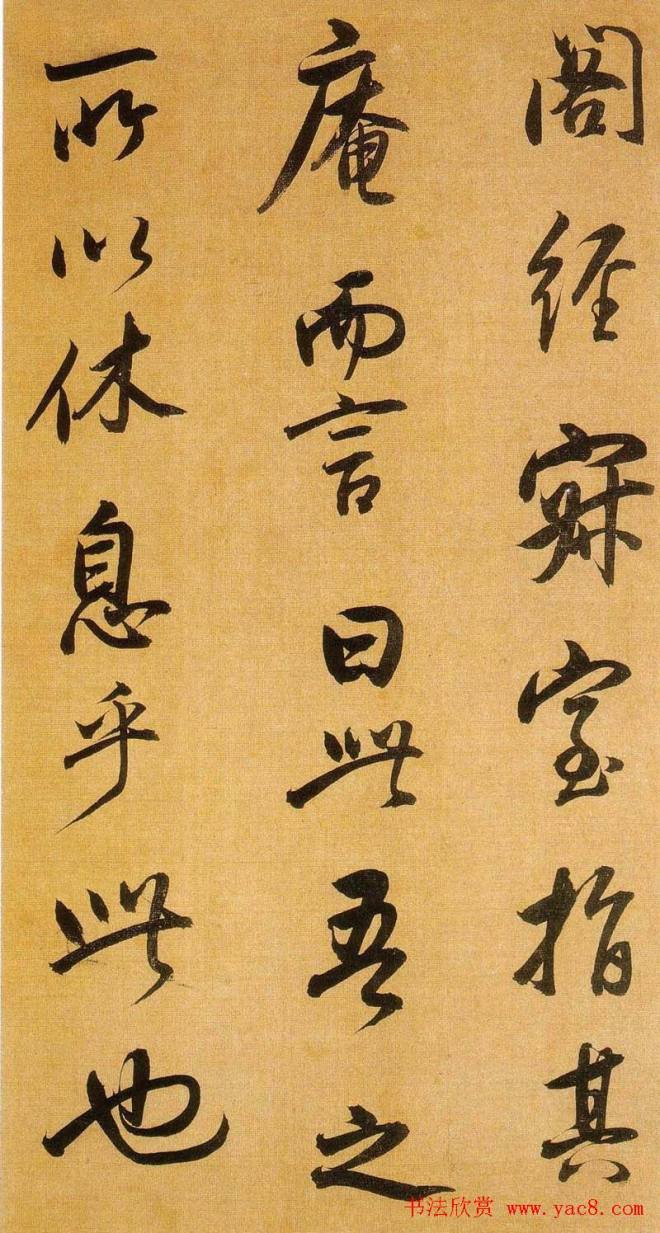 阁经寝室指其
庵而言曰此吾之
所以休息乎此也
书法欣赏 www.yac8.com